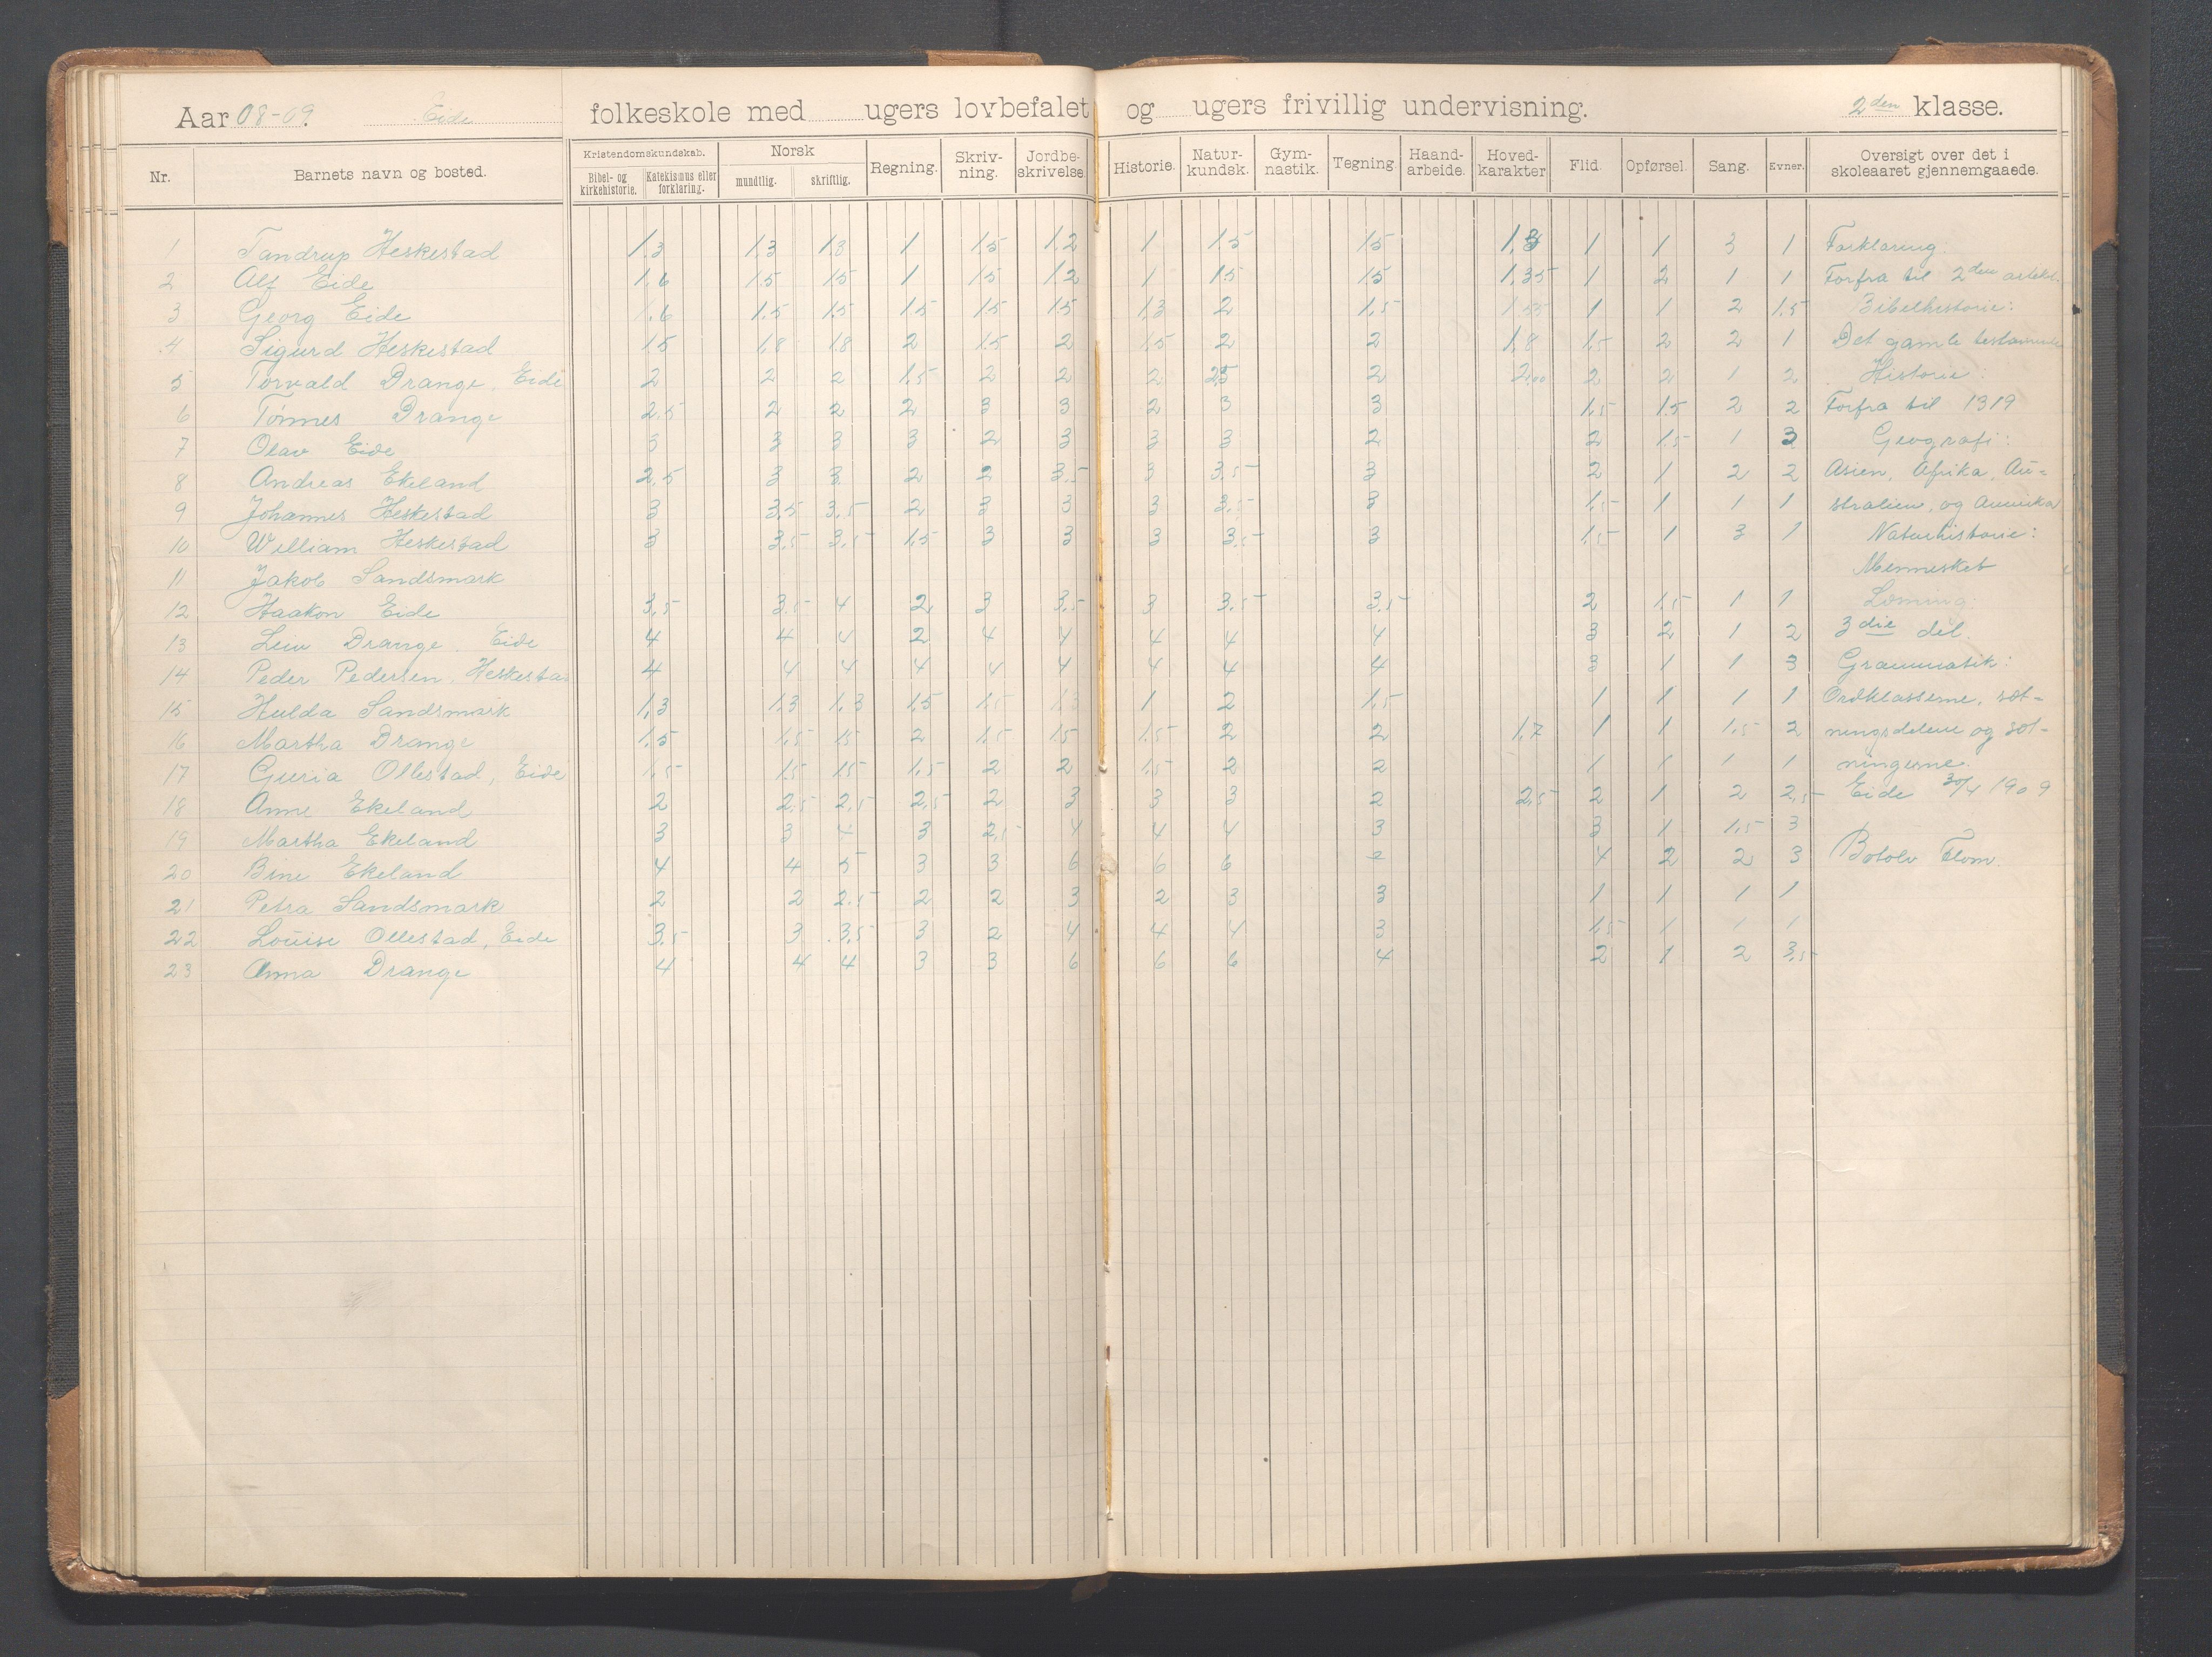 Aar 08-09. Eide folkeskole med ugers lovbefalet og ugers frivillig undervisning. 2den klasse.
Nr. Barnets navn og bosted. Kristendomskundskab. Bibel- og kirkehistorie. Katekismus eller forklaring. Norsk mundtlig. skriftlig. Regning. Skriv-ning. Jordbe-skrivelse. Historie. Natur-kundsk. Gym-nastik. Tegning. Haand-arbeide. Hoved-karakter Flid. Opførsel. Sang. Evner. Oversigt over det i skoleaaret gjennemgaaede.
1 Tandrup Heskestad 1,3 1,3 1,8 1 1,5 1,2 1 1,5 1,5 1 1 3 1 Forklaring
2 Alf Eide 1,6 1,5 1,5 1 1,5 1,2 1 1,5 1,5 1,35 1 2 1 1 Forfra til 2den artikel.
3 Georg Eide 1,6 1,5 1,5 1,5 1,5 1,5 1,3 2 1,5 1,55 1 1 2 1,5 Bibelhistorie:
4 Sigurd Heskestad 1,5 1,8 1,8 2 1,5 2 1,5 2 2 1,8 1,5 2 2 1 Det gamle testamente
5 Torvald Drange, Eide 2 2 2 1,5 2 2 2 2,5 2 2,00 2 2 1 2 Historie:
6 Tønnes Drange 2,5 2 2 2 3 3 2 3 3 1,5 1,5 2 2 Forfra til 1319
7 Olav Eide 3 3 3 3 2 3 3 3 2 2 1,5 1 3 Geografi:
8 Andreas Ekeland 2,5 3 3 2 2 3,5 3 3,5 3 2 1 2 2 Asien, Afrika, Au-
9 Johannes Heskestad 3 3,5 3,5 2 3 3 3 3,5 3 1,5 1 1 1 stralien, og Amerika
10 William Heskestad 3 3,5 3,5 1,5 3 3 3 3,5 3 1,5 1 3 1 Naturhistorie:
11 Jakob Sandsmark Mennesket
12 Haakon Eide 3,5 3,5 4 2 3 3,5 3 3,5 3,5 2 1,5 1 1 Læsning:
13 Leiv Drange, Eide 4 4 4 2 4 4 4 4 4 3 2 1 2 3die del.
14 Peder Pedersen, Heskestad 4 4 4 4 4 4 4 4 4 3 1 1 3 Grammatik:
15 Hulda Sandsmark 1,3 1,3 1,3 1,5 1,5 1,3 1 2 1,5 1 1 1 1 Ordklasserne, sæt-
16 Martha Drange 1,5 1,5 1,5 2 1,5 1,5 1,5 2 2 1,7 1 1 1,5 2 ningsdelene og sæt-
17 Guria Ollestad, Eide 1,5 1,5 1,5 1,5 2 2 1,5 2 2 1 1 1 1 ningerne.
18 Anne Ekeland 2 2,5 2,5 2,5 2 3 3 3 2 2,5 2 1 2 2,5 Eide 30/4 1909
19 Martha Ekeland 3 3 4 3 2,5 4 4 4 3 3 1 1,5 3
20 Bine Ekeland 4 4 5 3 3 6 6 6 2 4 2 2 3 Botolv Flom.
21 Petra Sandsmark 2 2 2,5 2 2 3 2 3 3 1 1 1 1
22 Louise Ollestad, Eide 3,5 3 3,5 3 2 4 4 4 3 1,5 1 1 1
23 Anna Drange 4 4 4 3 3 6 6 6 4 2 1 2 3,5